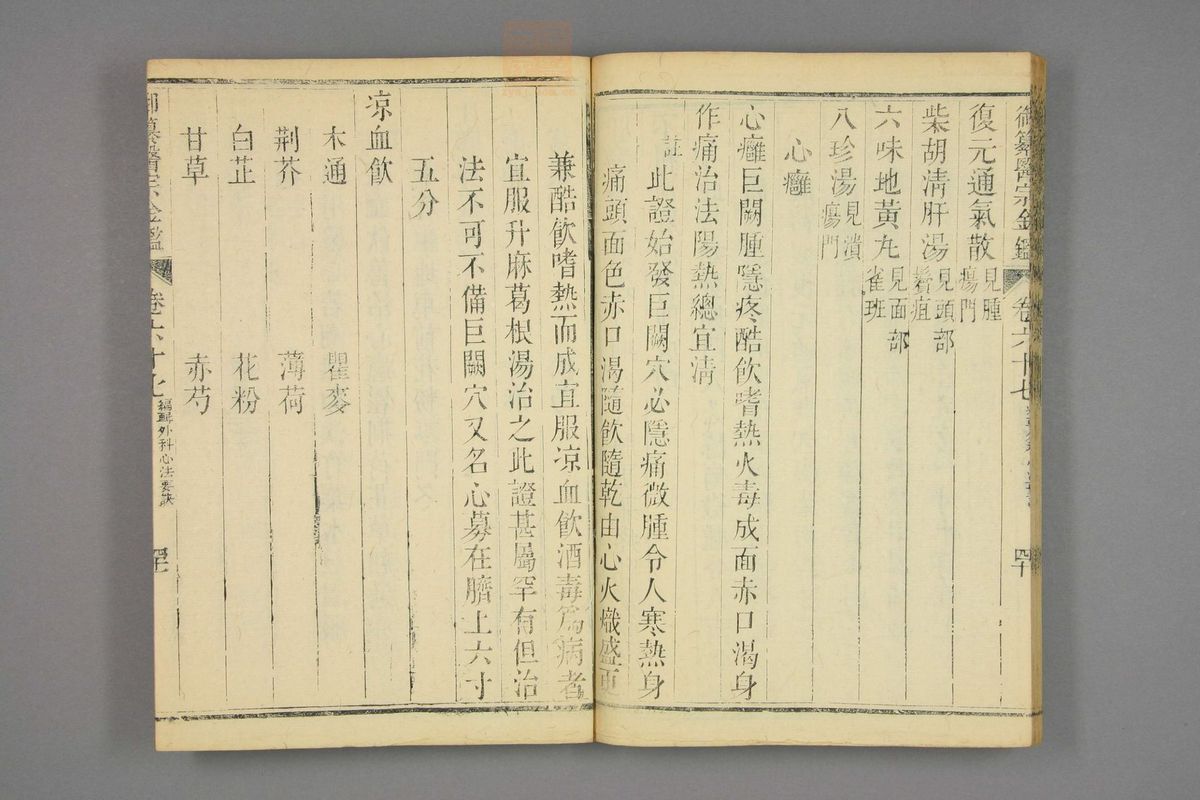 御纂醫宗金鑑 卷六十七 四十
復元通氣散 見腫瘍門
柴胡清肝湯 見頭部鬢疽
六味地黃丸 見面部雀班
八珍湯 見潰瘍門
心癰
心癰巨闕腫隱疼酷飲嗜熱火毒成面赤口渴身
作痛治法陽熱總宜清
註 此證始發巨闕穴必隱痛微腫令人寒熱身
痛頭面色赤口渴隨飲隨乾由心火熾盛更
兼酷飲嗜熱而成宜服凉血飲酒毒為病者
宜服升麻葛根湯治之此證甚屬罕有但治
法不可不備巨闕穴又名心募在臍上六寸
五分
凉血飲
木通 瞿麥
荆芥 薄荷
白芷 花粉
甘草 赤芍
御纂醫宗金鑑 卷六十七 編輯外科心法要訣